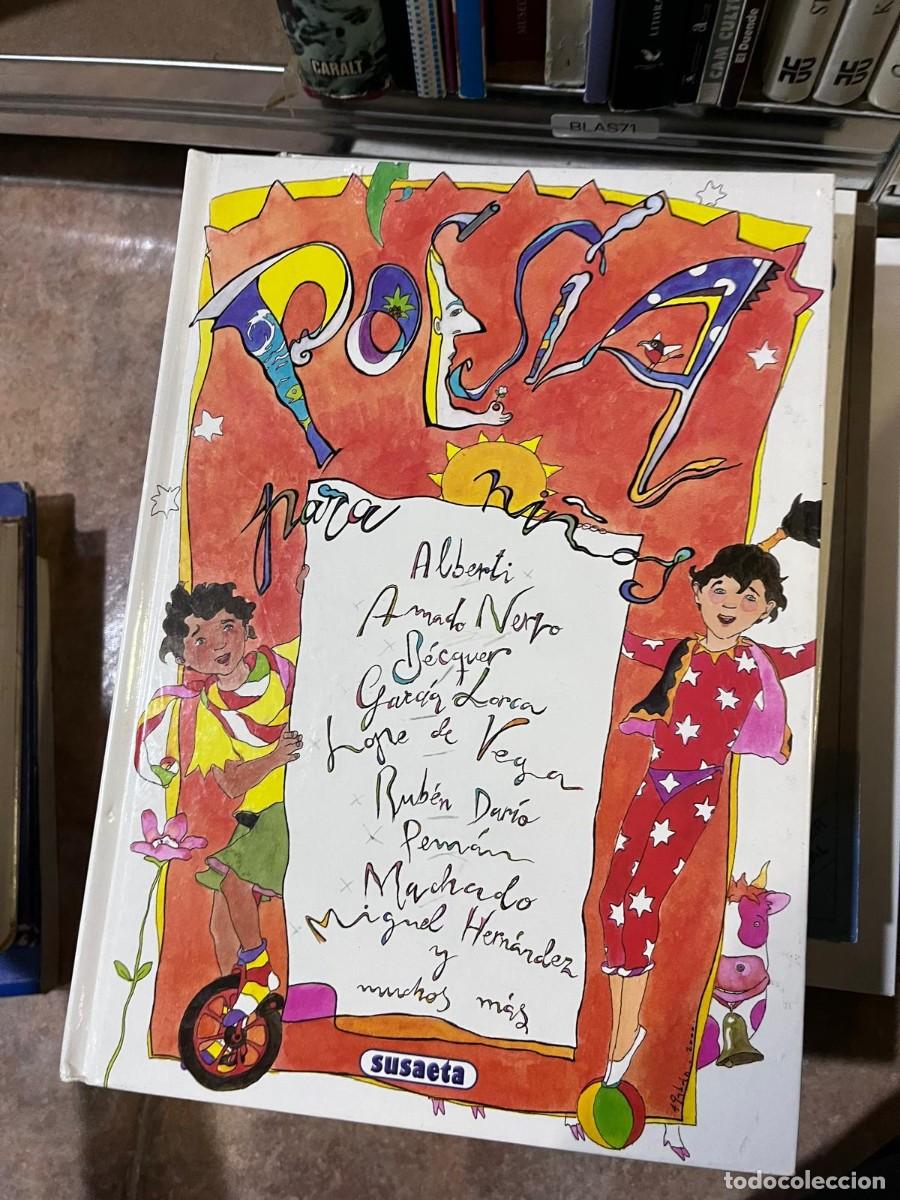 CARALT
CAM CULTU
El Duende
BLAS71
POESÍA
para niños
Alberti
Amado Nervo
Bécquer
García Lorca
Lope de Vega
Rubén Darío
Pemán
Machado
Miguel Hernández
y
muchos más
susaeta
todocoleccion